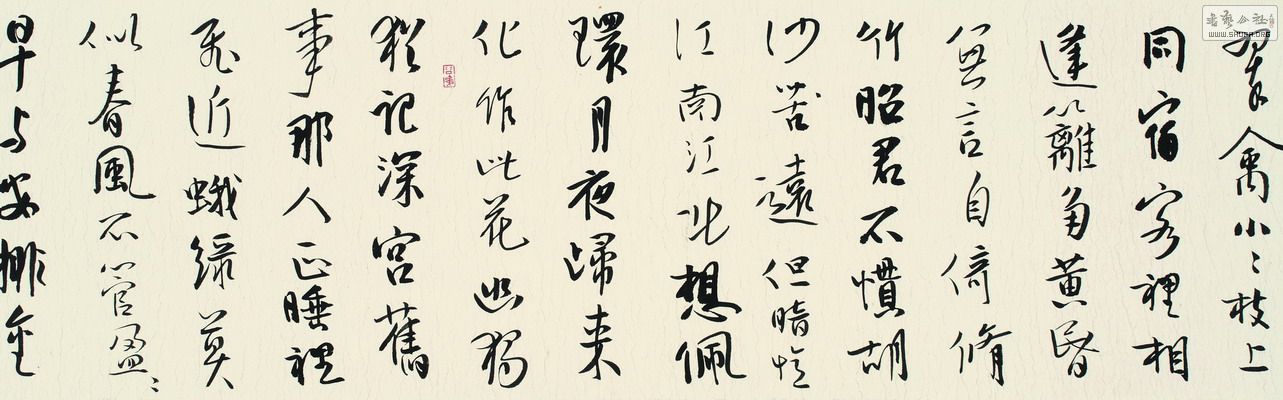 翠禽小〻枝上
同宿客裡相
逢籬角黄昏
無言自倚脩
竹昭君不慣胡
沙苦遠但暗憶
江南江北想佩
環月夜歸来
化作此花幽獨
猶記深宮舊
事那人正睡裡
飛近蛾綠莫
似春風不管盈〻
早与安排金
書藝公社
www.SHUFA.ORG